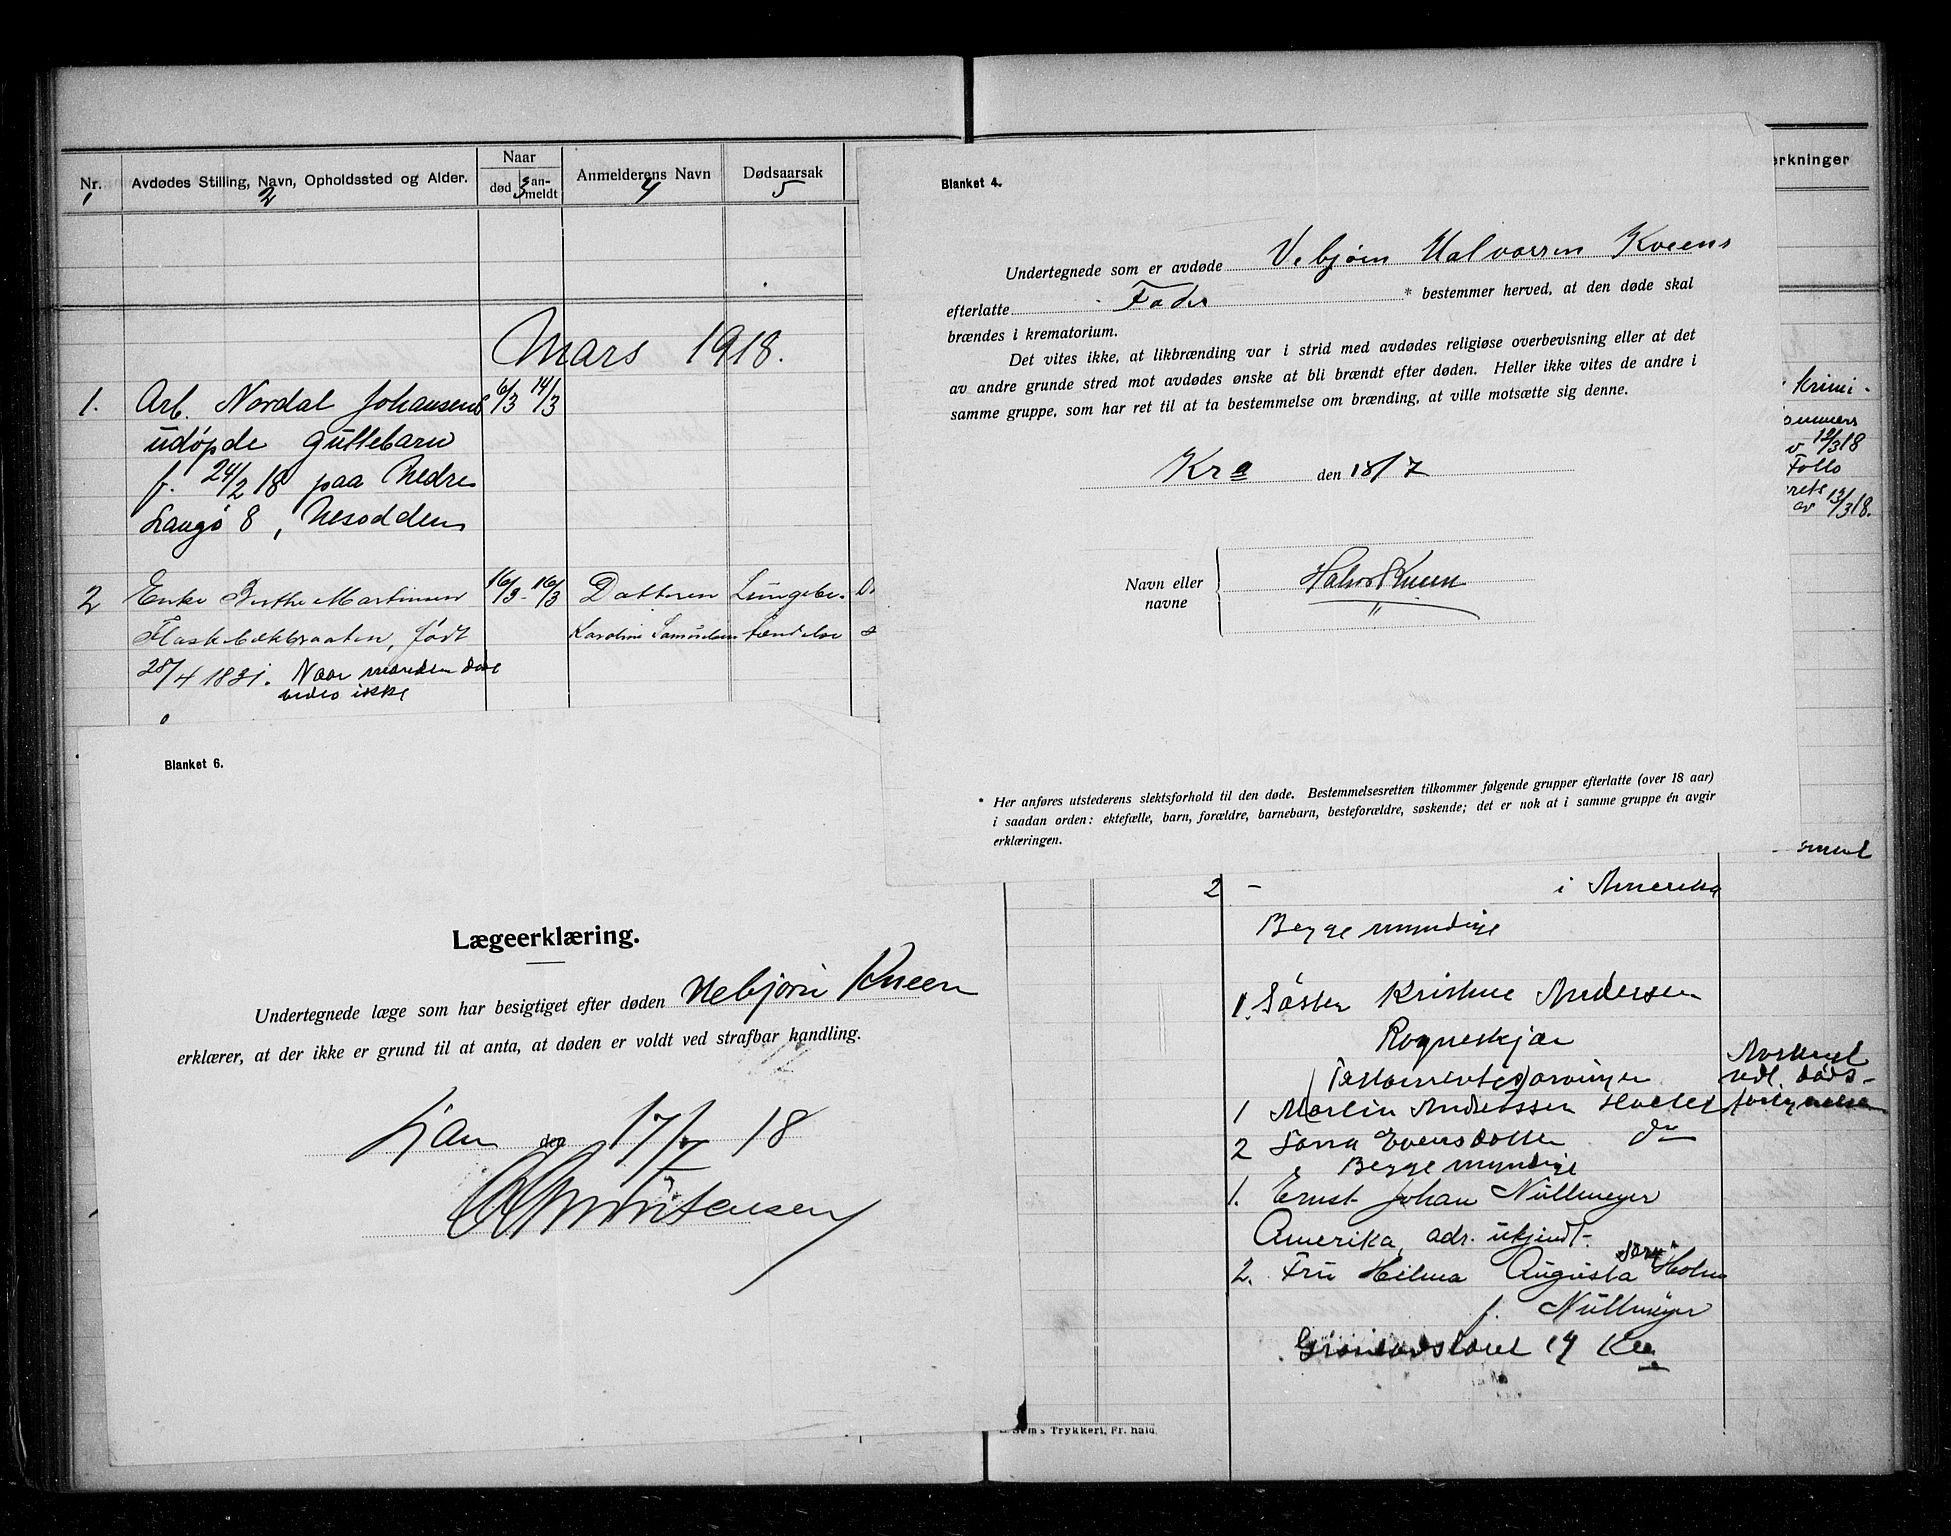 Nr. Avdødes Stilling, Navn, Opholdssted og Alder. Naar Anmelderens Navn Dødsaarsak
død anmeldt
1 2 3 4 5
Mars 1918.
1. Arb. Nordal Johansens 6/3 14/3
udøpde guttebarn
f. 24/2 18 paa Nedre
Langø 8, Nesodden
2 Enke Berthe Martinsen 16/3 - 16/3 Datteren Lungebe-
Flaskebækbraaten, født Karoline Samuelsen tændelse
28/4 1831. Naar manden døde
vides ikke
Blanket 6.
Lægeerklæring.
Undertegnede læge som har besigtiget efter døden Vebjørn Kveen
erklærer, at der ikke er grund til at anta, at døden er voldt ved strafbar handling.
Ljan den 17/7 18
Blanket 4.
Undertegnede som er avdøde Vebjørn Halvorsen Kveens
efterlatte Fader * bestemmer herved, at den døde skal
brændes i krematorium.
Det vites ikke, at likbrænding var i strid med avdødes religiøse overbevisning eller at det
av andre grunde stred mot avdødes ønske at bli brændt efter døden. Heller ikke vites de andre i
samme gruppe, som har ret til at ta bestemmelse om brænding, at ville motsætte sig denne.
Kra den 18/7
Navn eller
navne
Halvor Kveen
* Her anføres utstederens slektsforhold til den døde. Bestemmelsesretten tilkommer følgende grupper efterlatte (over 18 aar)
i saadan orden: ektefælle, barn, forældre, barnebarn, besteforældre, søskende; det er nok at i samme gruppe én avgir
erklæringen.
erkninger
Krimi-
ommers
v 12/3 18
Follo
erets
av 13/3 18.
2 - i Amerika
Begge myndige
1. Søster Kristine Andersen
Rogneskjær
(Testamentsarvinger Avskrevet
vedl. døds-
1 Martin Anderssen Hvelet
2 Evensdatter do
Begge myndige
1. Ernst Johan Nüllmeyer
Amerika, adr. ukjendt.
2. Fru Hilma Augusta Holm
f. Nüllmeyer
Grønlandstoret 19 Kra
Sem's Trykkeri, Fr.hald.